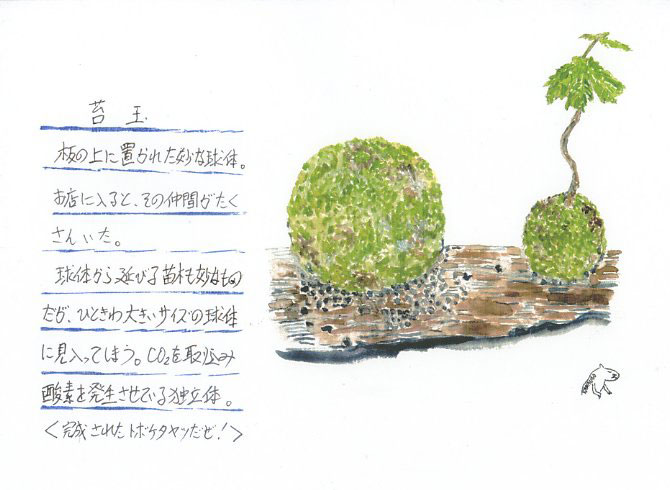 苔玉
板の上に置かれた妙な球体。
お店に入ると、その仲間がたく
さんいた。
球体から延びる苗木も妙なもの
だが、ひときわ大きいサイズの球体
に見入ってしまう。CO₂を取り込み
酸素を発生させている独立体。
＜完成されたトボケタヤツだぜ！＞